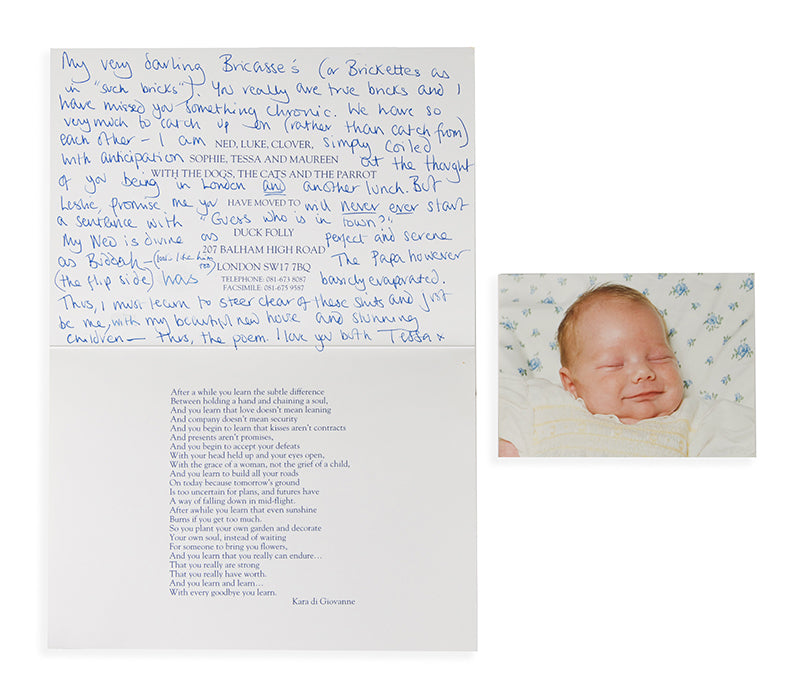 My very darling Bricasse's (or Brickettes as
in "such bricks"). You really are true bricks and I
have missed you something chronic. We have so
very much to catch up on (rather than catch from)
each other – I am NED, LUKE, CLOVER, simply coiled
with anticipation SOPHIE, TESSA AND MAUREEN at the thought
WITH THE DOGS, THE CATS AND THE PARROT
of you being in London and another lunch. But
Leslie, promise me you HAVE MOVED TO will never ever start
a sentence with "Guess who is in town?"
DUCK FOLLY
My Ned is divine as perfect and serene
207 BALHAM HIGH ROAD
as Buddah – (you'll like him too) LONDON SW17 7BQ The Papa however
(the flip side) has TELEPHONE: 081-673 8087 basically evaporated.
FACSIMILE: 081-675 9587
Thus, I must learn to steer clear of these shits and just
be me, with my beautiful new house and stunning
children – thus, the poem. I love you both Tessa x
After a while you learn the subtle difference
Between holding a hand and chaining a soul,
And you learn that love doesn't mean leaning
And company doesn't mean security
And you begin to learn that kisses aren't contracts
And presents aren't promises,
And you begin to accept your defeats
With your head held up and your eyes open,
With the grace of a woman, not the grief of a child,
And you learn to build all your roads
On today because tomorrow's ground
Is too uncertain for plans, and futures have
A way of falling down in mid-flight.
After awhile you learn that even sunshine
Burns if you get too much.
So you plant your own garden and decorate
Your own soul, instead of waiting
For someone to bring you flowers,
And you learn that you really can endure...
That you really are strong
That you really have worth.
And you learn and learn...
With every goodbye you learn.
Kara di Giovanne